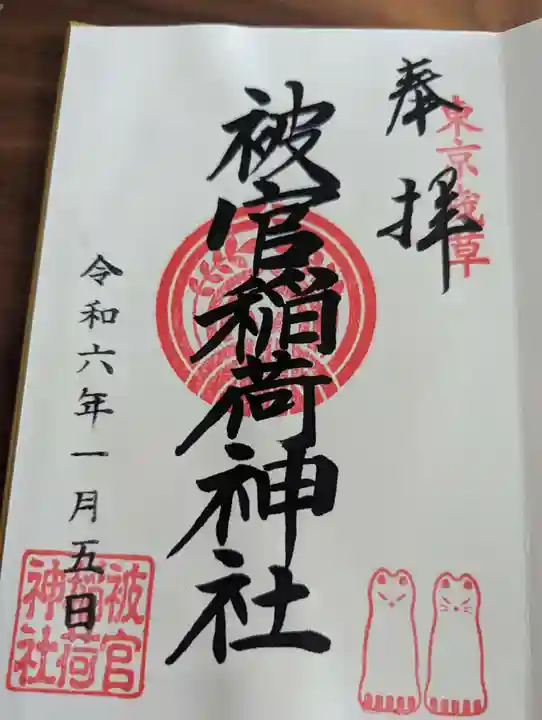 奉拝
東京浅草
被官稲荷神社
令和六年一月五日
被官
稲荷
神社